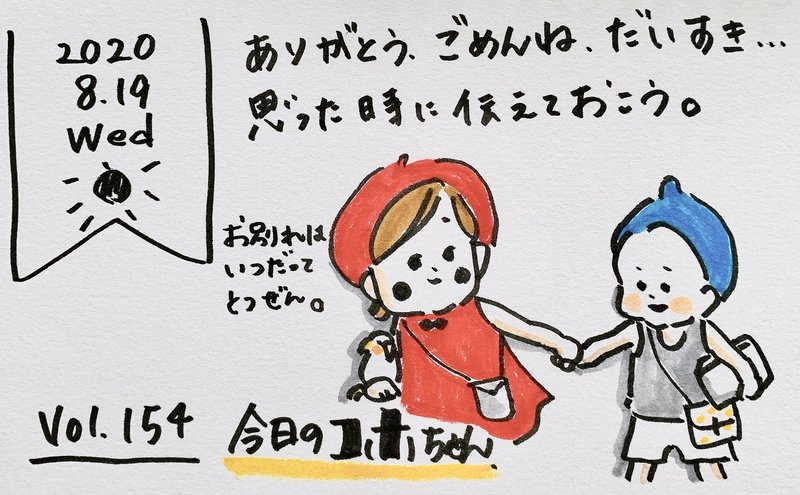 2020
8.19
Wed
ありがとう、ごめんね、だいすき…
思った時に伝えておこう。
お別れは
いつだって
とつぜん。
Vol.154
今日のコホちゃん